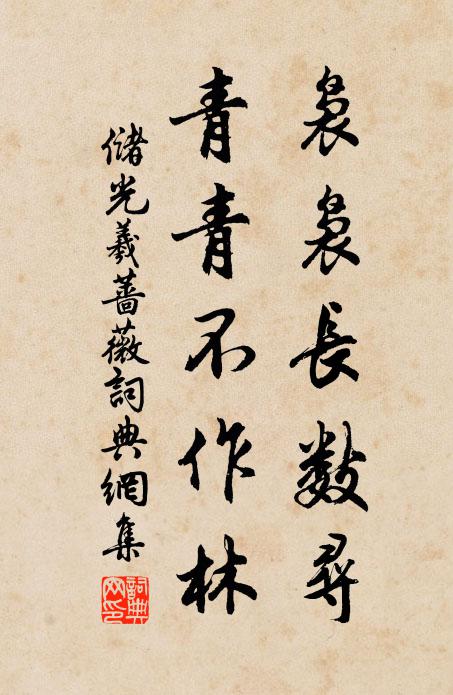 裊裊長數尋
青青不作林
儲光羲薔薇詞典網集
詞典網印